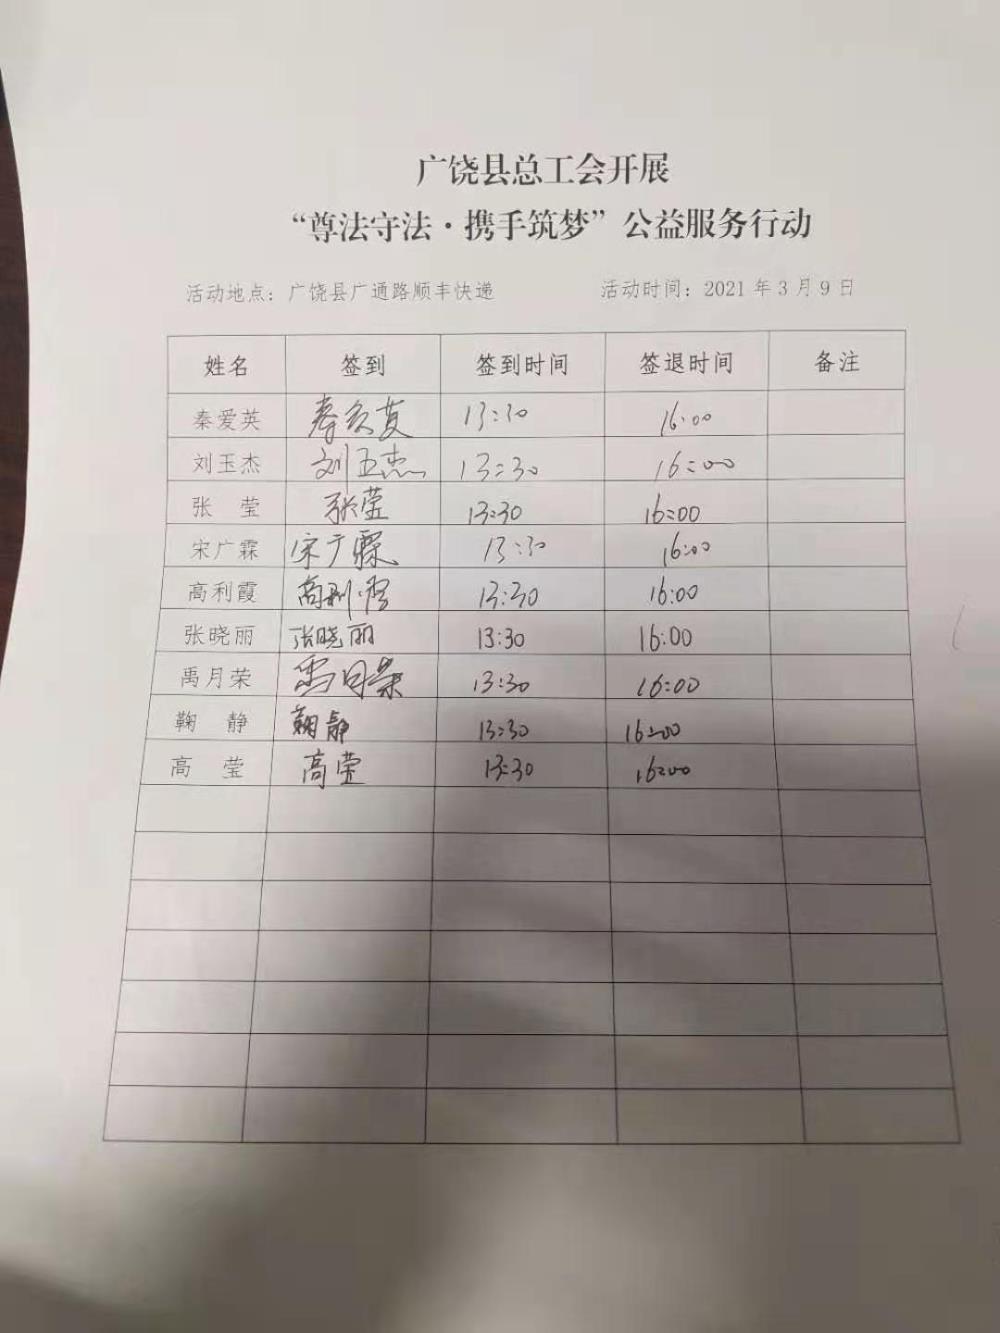 广饶县总工会开展
“尊法守法·携手筑梦”公益服务行动
活动地点：广饶县广通路顺丰快递 活动时间：2021年3月9日
姓名 签到 签到时间 签退时间 备注
秦爱英 秦爱英 13:30 16:00
刘玉杰 刘玉杰 13:30 16:00
张 莹 张莹 13:30 16:00
宋广霖 宋广霖 13:30 16:00
高利霞 高利霞 13:30 16:00
张晓丽 张晓丽 13:30 16:00
禹月荣 禹月荣 13:30 16:00
鞠 静 鞠静 13:30 16:00
高 莹 高莹 13:30 16:00